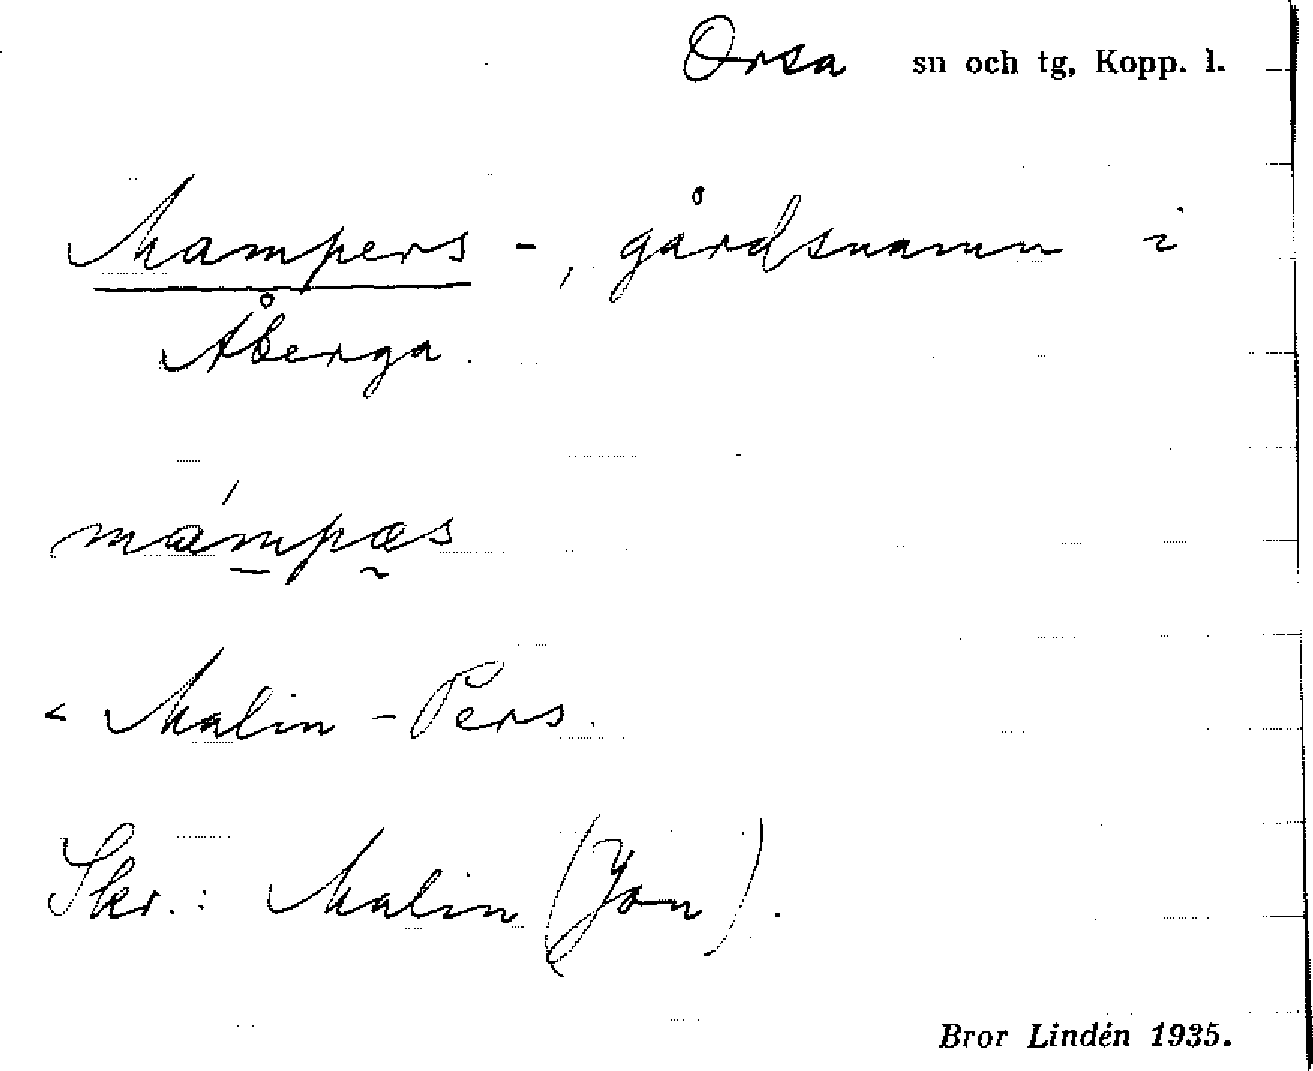 Orsa sn och tg, Kopp. l.
Mampers -, gårdsnamn i
Åberga.
mámpæs
< Malin - Pers.
Skr.: Malin (Jon).
Bror Lindén 1935.